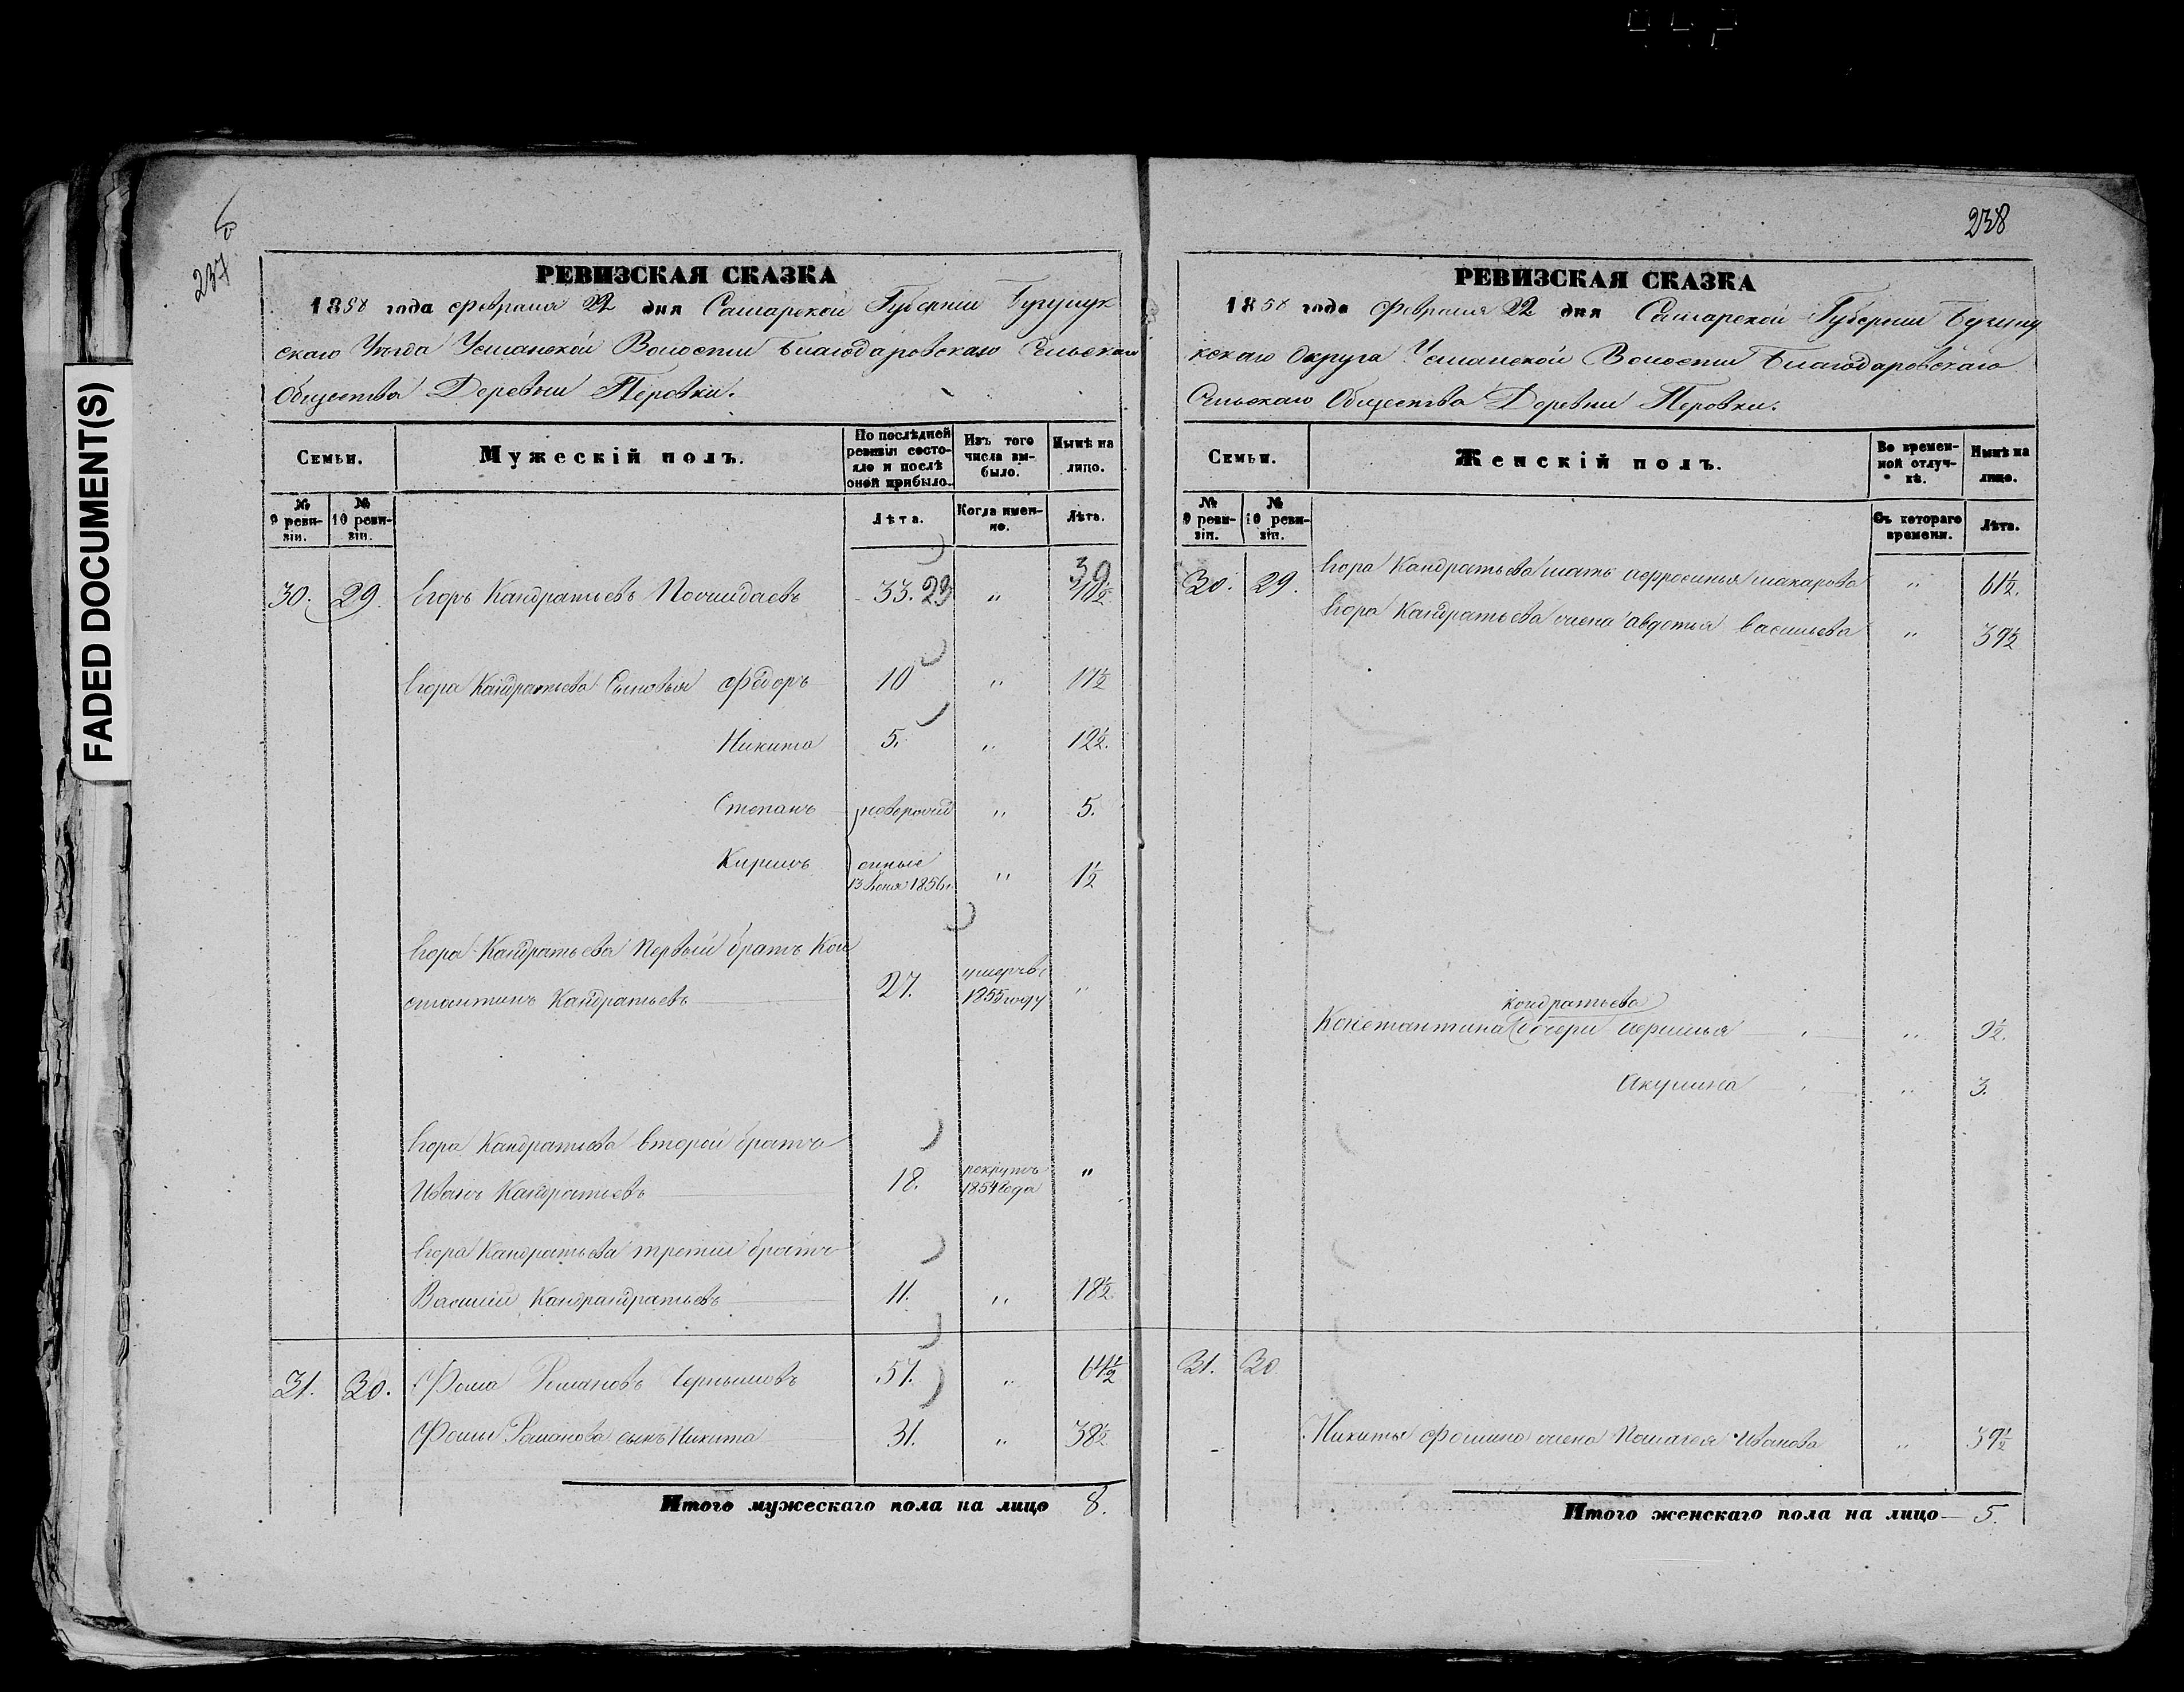 FADED DOCUMENT(S)
237
РЕВИЗСКАЯ СКАЗКА
1858 года Февраля 22 дня Самарской Губернии Бугулук
скаго Уезда Усманской Волости Благодаровскаго Сельскаго
Общества Деревни Перовки.
Семьи.
Мужескій полъ.
По послѣдней ревизіи состояло и послѣ оной прибыло.
Изъ того числа выбыло.
Нынѣ на лицо.
№ 9 ревизіи.
№ 10 ревизіи.
Лѣта.
Когда именно.
Лѣта.
30. 29. Егоръ Кандратьевъ 33. 23 " 39
Егора Кандратьева Сыновья Фёдоръ 10 " 17½
Никита 5. " 12½.
Степанъ " 5.
Кирилъ 13 1856 " 1½
Егора Кандратьева Первый братъ Кон
стантинъ Кандратьевъ 27. 1855 году "
Егора Кандратьева второй братъ
Иванъ Кандратьевъ 18. рекрутъ 1854 года "
Егора Кандратьева третий братъ
Василий Кандрандратьевъ 11. " 18½
31. 30. Фома Романовъ 57. " 64½
Фомы Романова сынъ Никита 31. " 38½
Итого мужескаго пола на лицо 8.
238
РЕВИЗСКАЯ СКАЗКА
1858 года Февраля 22 дня Самарской Губернии Бугулу
кскаго Округа Усманской Волости Благодаровскаго
Сельскаго Общества Деревни Перовки.
Семьи.
Женскій полъ.
Во временной отлучкѣ.
Нынѣ на лицо.
№ 9 ревизіи.
№ 10 ревизіи.
Съ котораго времени.
Лѣта.
30. 29. Егора Кандратьева мать Афросинья Макарова " 61½.
Егора Кандратьева жена Авдотья Васильева " 39½
кондратьева
Константина дочери " 9½.
Акулина " 3.
31. 30
Никиты Фомина жена Иванова " 39½
Итого женскаго пола на лицо 5.